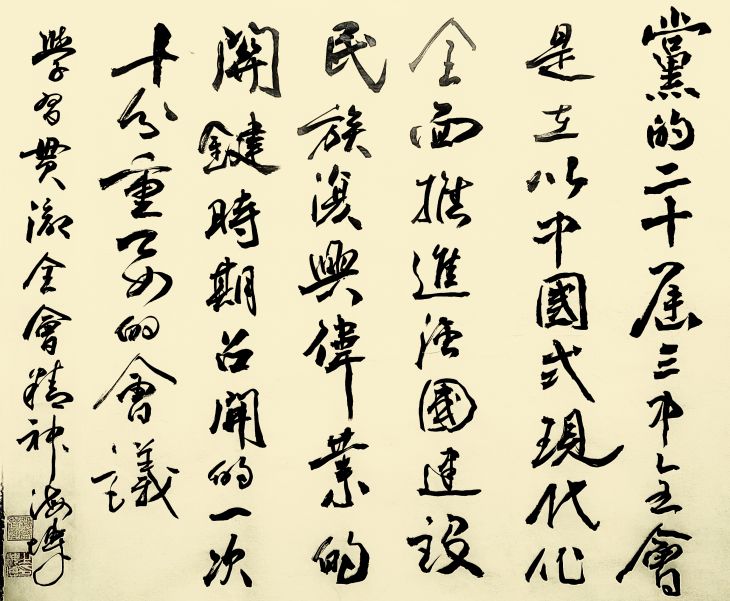 黨的二十屆三中全會
是在以中國式現代化
全面推進強國建設
民族復興偉業的
關鍵時期召開的一次
十分重要的會議
學習貫徹全會精神海